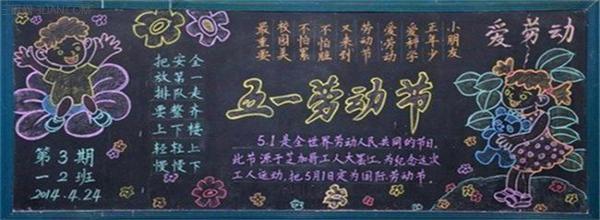 小朋友
正年少
爱科学
爱劳动
劳动节
又来到
不怕脏
不怕累
校园美
最重要
爱劳动
把安全
放第一
排队走
要整齐
上下楼
轻轻上
慢慢下
五一劳动节
5.1是全世界劳动人民共同的节日。
此节源于芝加哥工人大罢工,为纪念这次
工人运动,把5月1日定为国际劳动节。
第3期
一2班
2014.4.24